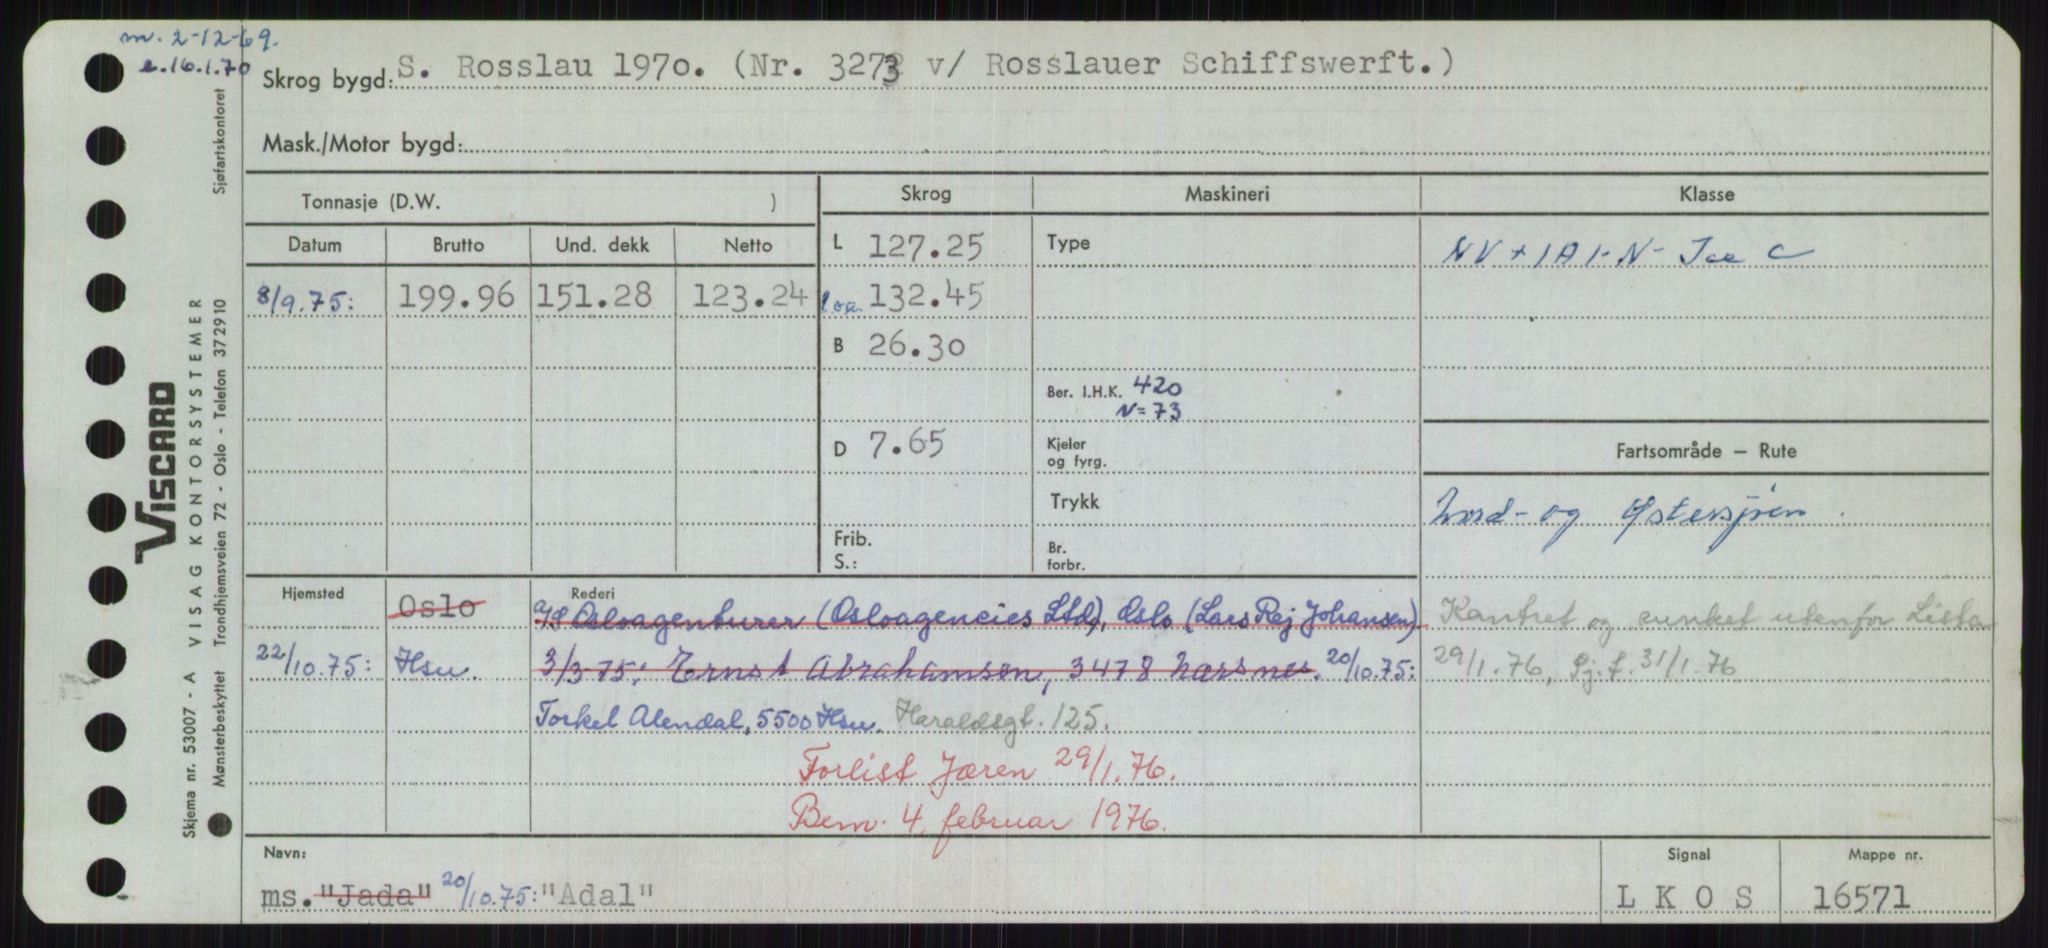 m. 2-12-69.
e.16.1.70
Skrog bygd: S. Rosslau 1970. (Nr. 3273 v/ Rosslauer Schiffswerft.)
Mask./Motor bygd:
Tonnasje (D.W. )
Skrog
Maskineri
Klasse
Datum Brutto Und. dekk Netto
L 127.25
Type
NV + 1A1-N- Ice C
8/9.75: 199.96 151.28 123.24
loa. 132.45
B 26.30
Ber. I.H.K. 420
N=73
D 7.65
Kjeler
og fyrg.
Fartsområde — Rute
Trykk
Nord- og Østersjøen.
Frib.
S.:
Br.
forbr.
Hjemsted
Oslo
Rederi
A/S Osloagenturer (Osloagencies Ltd), Oslo (Lars Rej Johansen)
Kantret og sunket utenfor Lista
22/10.75: Hsu. 3/3-75: Ernst Abrahamsen, 3478 Nærsnes. 20/10.75:
29/1.76, Sj.f. 31/1.76
Torkel Alendal, 5500 Hsu. Haraldsgt. 125.
Forlist Jæren 29/1.76.
Bem. 4. februar 1976.
Navn:
ms. "Jada" 20/10.75: "Adal"
Signal
L K O S
Mappe nr.
16571
VISCARD
VISAG KONTORSYSTEMER
Sjøfartskontoret
Skjema nr. 53007 - A
Mønsterbeskyttet Trondhjemsveien 72 - Oslo - Telefon 372910